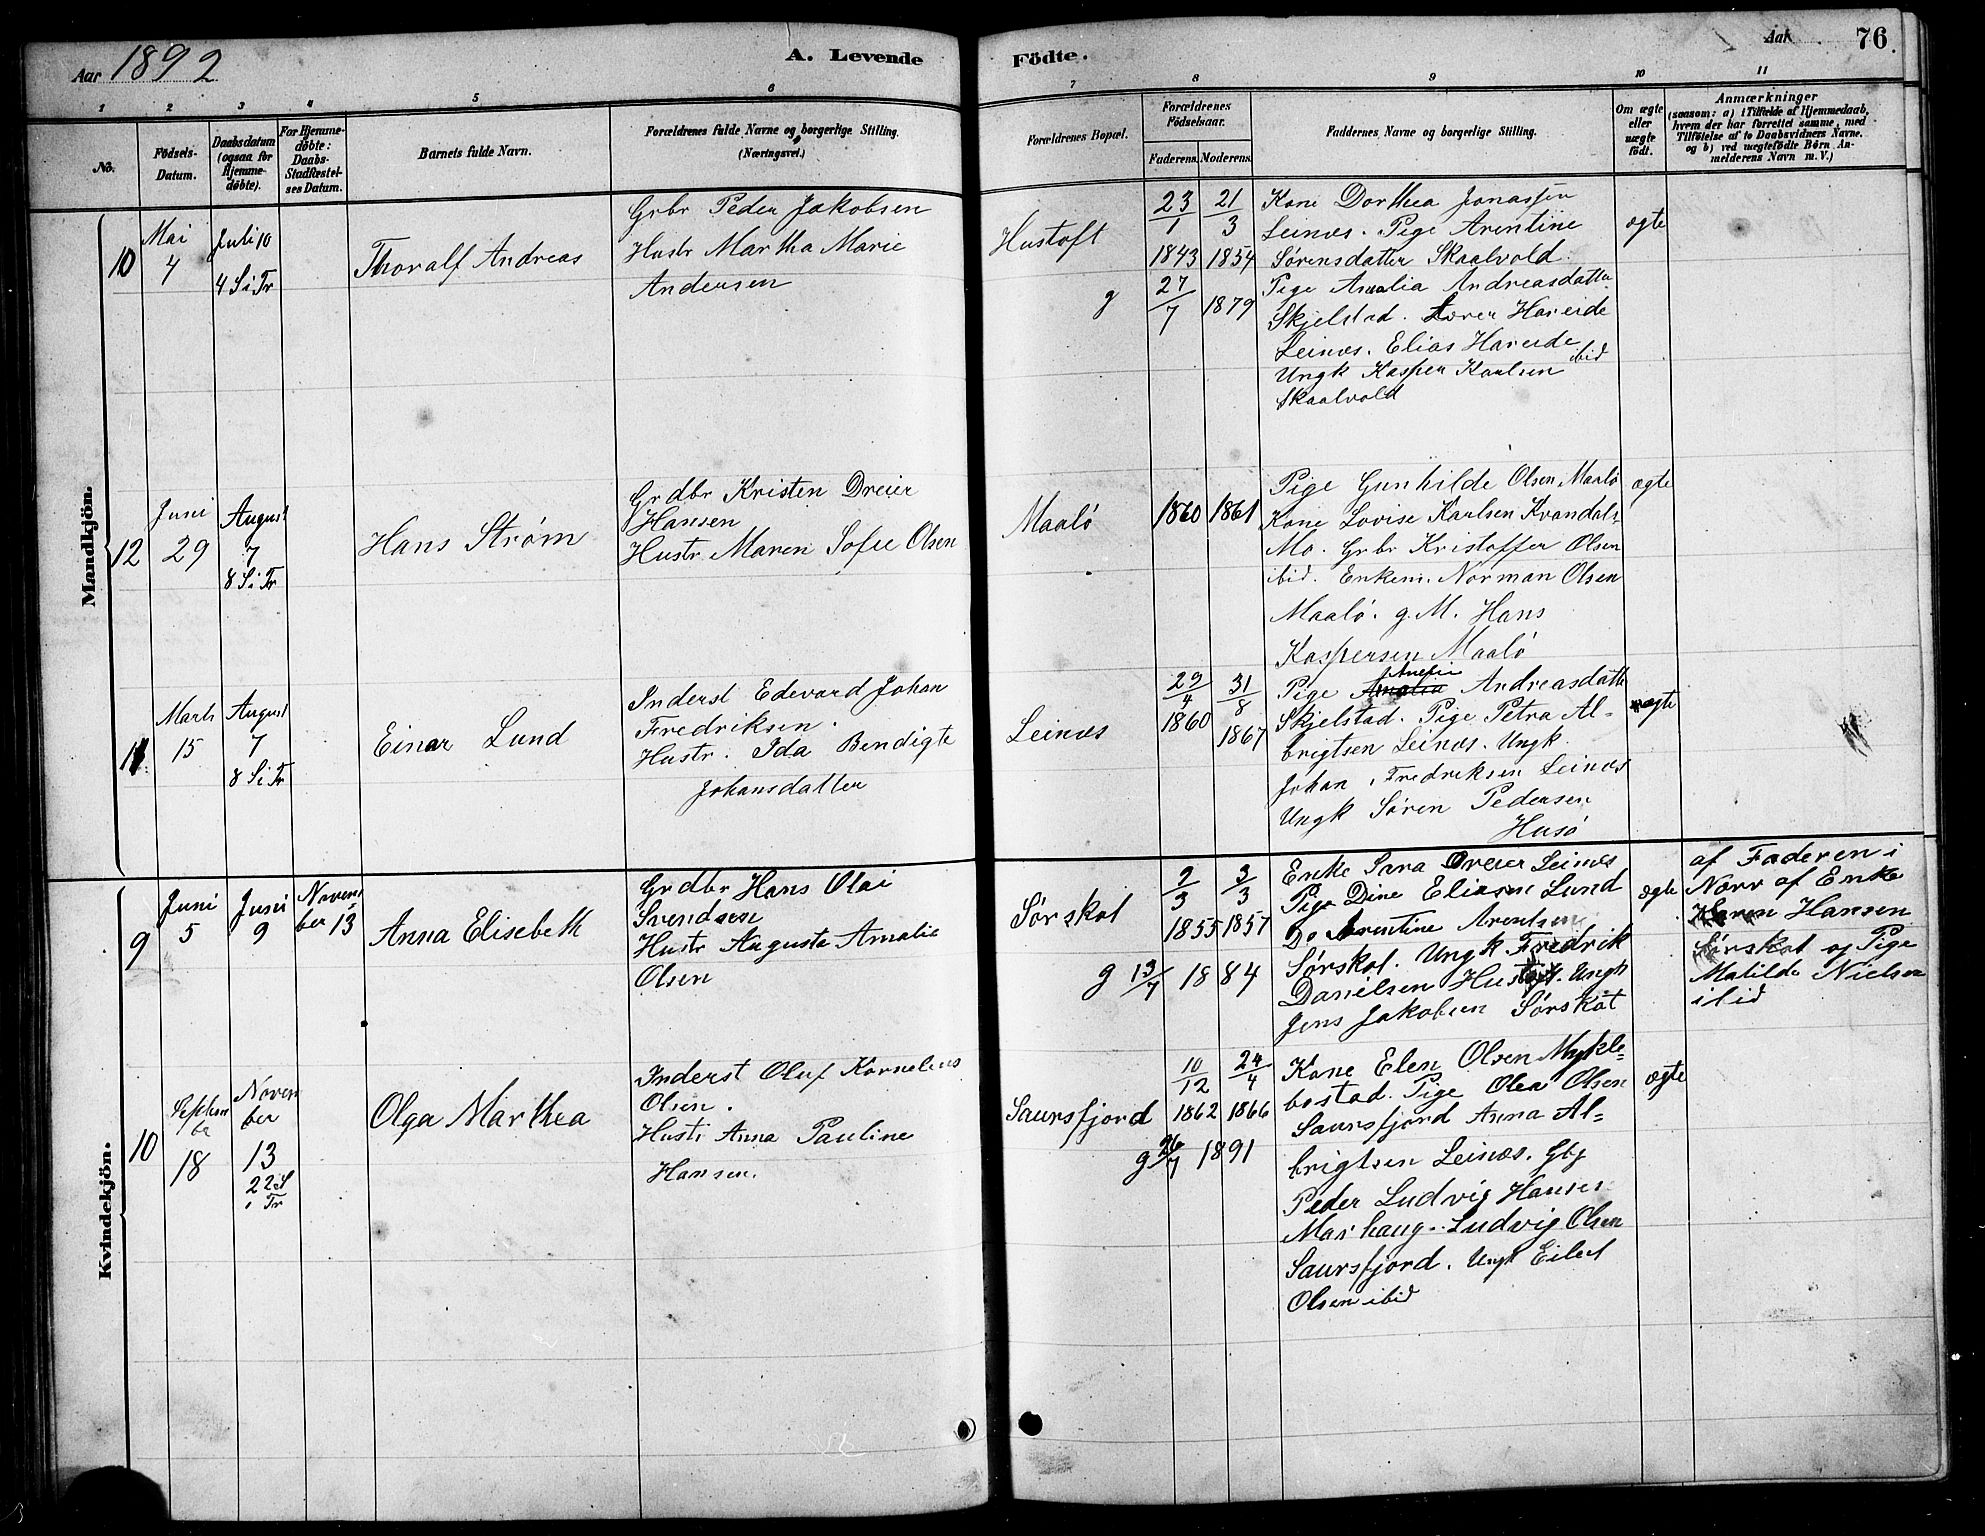 Aar 1892
A. Levende
Födte.
Aar
76.
1 2 3 4 5 6 7 8 9 10 11
No.
Födsels-
Datum.
Daabsdatum
(ogsaa for
Hjemme-
döbte).
For Hjemme-
döbte:
Daabs-
Stadfæstel-
ses Datum.
Barnets fulde Navn.
Forældrenes fulde Navne og borgerlige Stilling.
(Næringsvei.)
Forældrenes Bopæl.
Forældrenes
Födselsaar.
Faderens. Moderens.
Faddernes Navne og borgerlige Stilling.
Om ægte
eller
uægte
födt.
Anmærkninger
(saasom: a) i Tilfælde af Hjemmedaab,
hvem der har forrettet samme, med
Tilföielse af to Daabsvidners Navne.
og b) ved uægtefödte Börn An-
melderens Navn m. V.)
Mandkjön.
10
Mai
4
Juli 10
4 S i Tr
Thoralf Andreas
Grbr Peder Jakobsen
Hustr Martha Marie
Andersen
Hustoft
23/1 21/3
1843 1854
g 27/7 1879
Kone Dorthea Jonassen
Leinæs. Pige Arentine
Sørensdatter Skaalvold.
Pige Amalia Andreasdatter
Skjelstad. Lærer Hareide
Leinæs. Elias Hareide
ibid
Ungk Kasper Karlsen
Skaalvold
ægte
12
Juni
29
August
7
8 S i Tr
Hans Strøm
Grdbr Kristen Dreier
Hansen
Hustr Maren Sofie Olsen
Maalö
1860 1861
Pige Gunhilde Olsen Maalö
Kone Lovise Karlsen Kvandal-
Mo. Grbr Kristoffer Olsen
ibid. Enkem. Norman Olsen
Maalö. g. M. Hans
Kaspersen Maalö
ægte
11
Marts
15
August
7
8 S i Tr
Einar Lund
Inderst Edevard Johan
Fredriksen.
Hustr. Ida Bendigte
Johansdatter
Leinæs
29/4 31/8
1860 1867
Pige Amalia Andreasdatter
Skjelstad. Pige Petra Al-
brigtsen Leinæs. Ungk
Johan Fredriksen Leinæs
Ungk Sören Pedersen
Husö
ægte
Kvindekjön.
9
Juni
5
Juni
9
Novem
ber 13
Anna Elisebeth
Grdbr Hans Olai
Svendsen
Hustr Augusta Amalie
Olsen
Sørskot
2/3 3/3
1855 1857
g 13/7 1884
Enke Sara Dreier Leines
Pige Dine Eliasen Lund
Do Arentine Arentsen
Sørskot. Ungk Fredrik
Danielsen Hustoft. Ungk
Jens Jakobsen Sørskot
ægte
af Faderen i
Nærv af Enke
Karen Hansen
Sørskot og Pige
Matilde Nielsen
ibid
10
Septem
be
18
Novem
ber
13
22 S
i Tr
Olga Marthea
Inderst Oluf Kornelius
Olsen.
Hustr Anna Pauline
Hansen.
Saursfjord
10/12 24/4
1862 1866
g 26/7 1891
Kone Elen Olsen Mykle-
bostad. Pige Olea Olsen
Saursfjord Anna Al-
brigtsen Leinæs. Gbr
Peder Ludvig Hansen
Marhaug. Ludvig Olsen
Saursfjord. Ungk Eilert
Olsen ibid
ægte